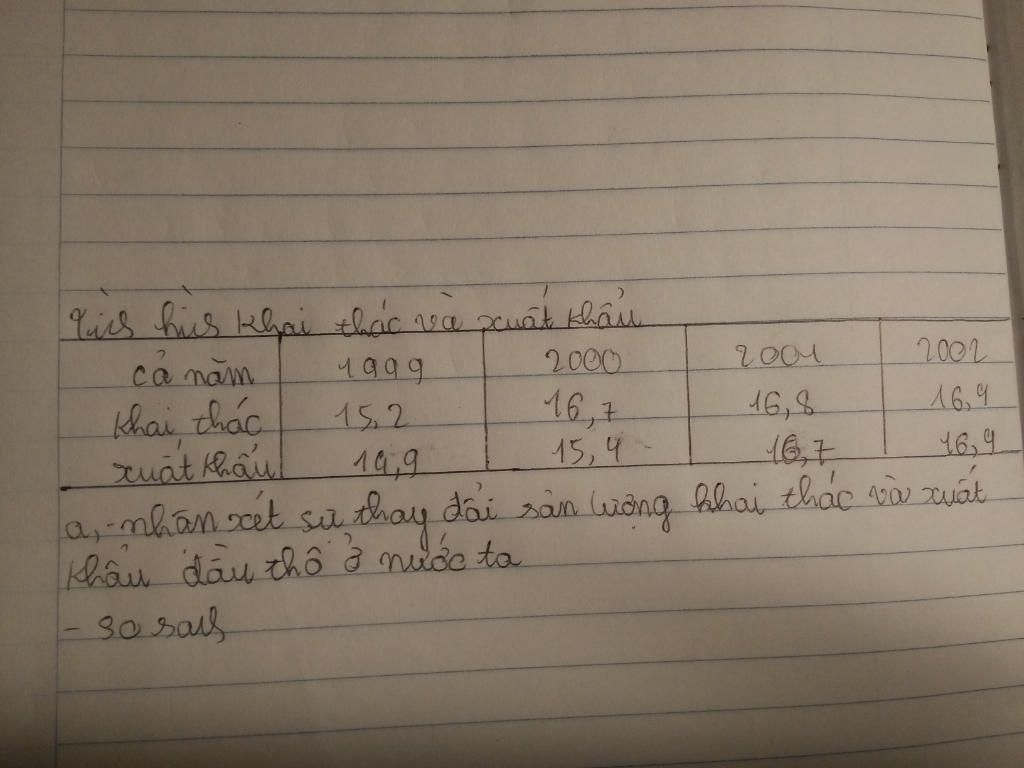 Tình hình khai thác và xuất khẩu
cả năm 1999 2000 2001 2002
khai thác 15,2 16,7 16,8 16,9
xuất khẩu 14,9 15,4 16,7 16,9
a,-nhận xét sự thay đổi sản lượng khai thác và xuất
khẩu dầu thô ở nước ta
- so sanh